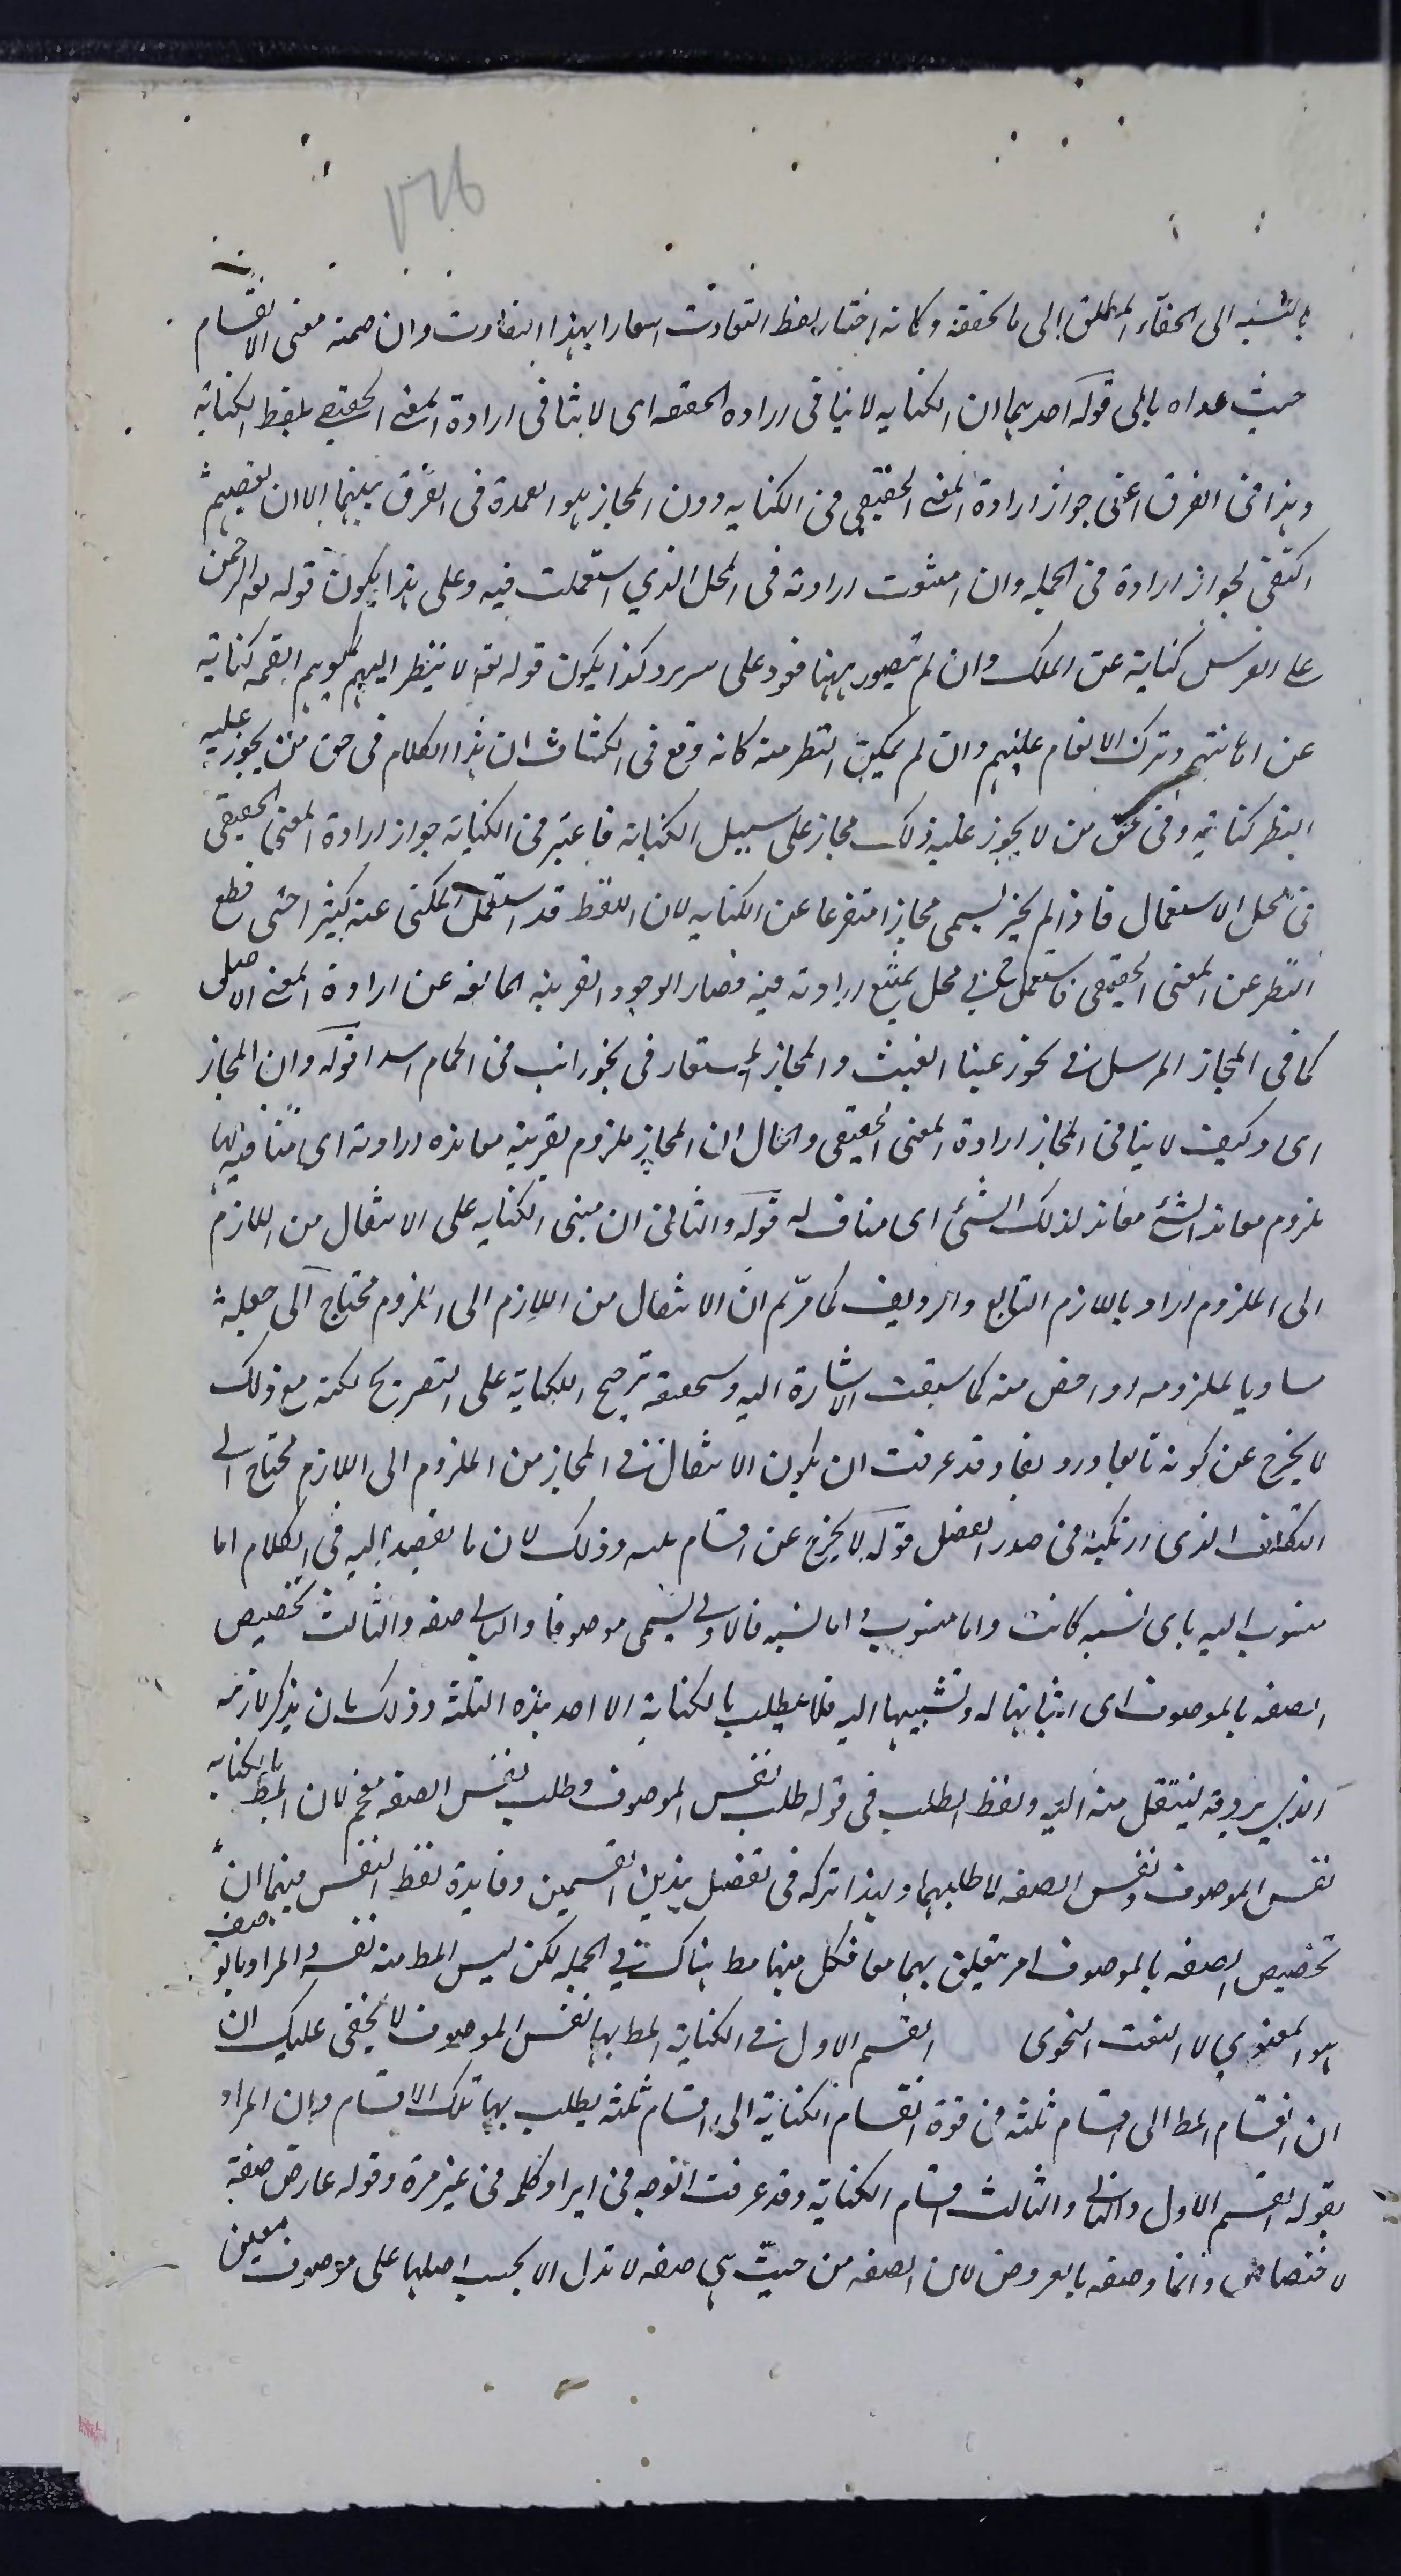 بالنسبة الى الخفاء المطلق الى ما تحققه وكانه اختار لفظ التفاوت اشعارا بهذا التفاوت وان ضمنه معنى الانقسام
حيث عداه بالى قوله احديهما ان الكناية لا ينافى ارادة الحقيقة اى لا ينافى ارادة المعنى الحقيقى بلفظ الكناية
وهذا فى الفرق اعنى جواز ارادة المعنى الحقيقى فى الكناية دون المجاز هو العمدة فى الفرق بينهما الا ان بعضهم
اكتفى لجواز ارادة فى الجملة وان امتنعت ارادته فى المحل الذي استعملت فيه وعلى هذا يكون قوله تعه الرحمن
على العرش كناية عن الملك وان لم يتصور ههنا قعود على سرير وكذا يكون قوله تعه لا ينظر اليهم يوم القيمة كناية
عن اهانتهم وترك الانعام عليهم وان لم يمكن النظر منه كانه وقع فى الكشاف ان هذا الكلام فى حق من يجوز عليه
النظر كناية وفى حق من لا يجوز عليه ذلك مجاز على سبيل الكناية فاعتبر فى الكناية جواز ارادة المعنى الحقيقى
فى محل الاستعمال فاذا لم يجز يسمى مجازا متفرعا عن الكناية لان اللفظ قد استعمل المكنى عنه كثيرا حتى قطع
النظر عن المعنى الحقيقى فاستعمل فى محل يمتنع ارادته فيه فصار الوجود القرينة المانعة عن ارادة المعنى الاصلى
كما فى المجاز المرسل فى نحو رعينا الغيث والمجاز المستعار فى نحو رايت فى الحمام اسدا قوله وان المجاز
اى وكيف لا ينافى المجاز ارادة المعنى الحقيقى والحال ان المجاز ملزوم لقرينة معاندة ارادته اى منافيه لها
ملزوم معاند الشئ معاند لذلك الشئ اى مناف له قوله والثانى ان مبنى الكناية على الانتقال من اللازم
الى الملزوم اراد باللازم التابع والرديف كما مر ثم ان الانتقال من اللازم الى الملزوم محتاج الى جعله
مساويا لملزومه او اخص منه كما سبقت الاشارة اليه وسحققه ترجيح الكناية على التصريح لكنه مع ذلك
لا يخرج عن كونه تابعا ورديفا وقد عرفت ان يكون الانتقال فى المجاز من الملزوم الى اللازم محتاج الى
التكلف الذى ارتكبه فى صدر الفصل قوله لا يخرج عن اقسام ثلثه وذلك لان ما يقصد اليه فى الكلام اما
منسوب اليه باى نسبة كانت واما منسوب و اما نسبة فالاول يسمى موصوفا والثانى صفة والثالث تخصيص
الصفة بالموصوف اى اثباتها له ونسبتها اليه فلا يطلب بالكناية الا احد هذه الثلثة وذلك بان يذكر لازمه
الذي يردفه لينتقل منه اليه ولفظ الطلب فى قوله طلب نفس الموصوف وطلب نفس الصفة مقحم لان المط بالكناية
نفس الموصوف ونفس الصفه لا طلبهما ولهذا تركه فى تفصيل هذين القسمين وفايدة لفظ النفس فيهما ان
تخصيص الصفه بالموصوف امر يتعلق بهما معا فكل منهما مط هناك فى الجملة لكن ليس المط منه نفسه والمراد بالوصف
هو المعنوي لا النعت النحوى القسم الاول فى الكناية المط بها نفس الموصوف لا يخفى عليك ان
ان انقسام المط الى اقسام ثلثه فى قوة انقسام الكناية الى اقسام ثلثه يطلب بها تلك الاقسام وان المراد
بقوله القسم الاول والثانى والثالث اقسام الكناية وقد عرفت الوجه فى ايراد كلمه فى غير مرة وقوله عارض صفة
لاختصاص وانما وصفه بالعروض لان الصفه من حيث هى صفه لا تدل الا بحسب اصلها على موصوف معين